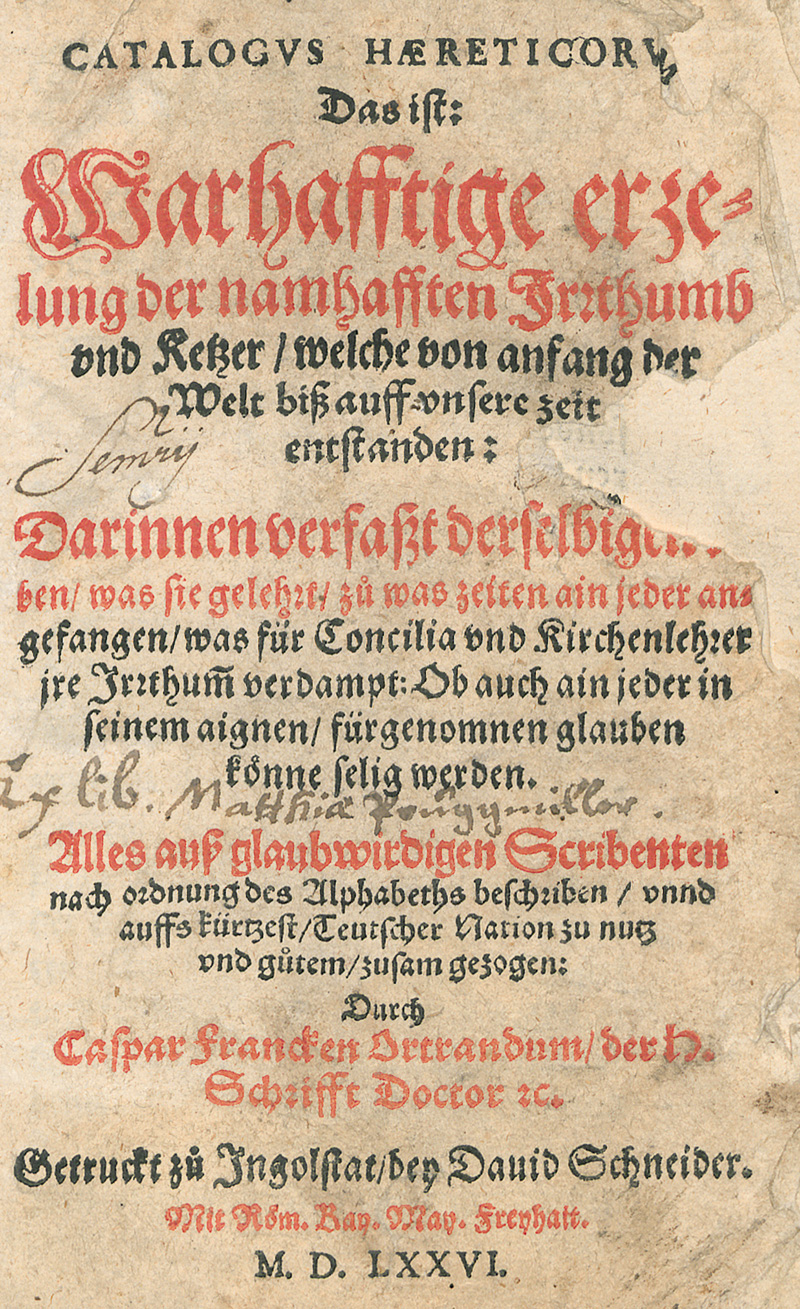 CATALOGVS HÆRETICORV
Das ist:
Warhafftige erze-
lung der namhafften Irrthumb
vnd Ketzer / welche von anfang der
Welt biß auff vnsere zeit
entstanden:
Semrij
Darinnen verfaßt derselbigen
ben/ was sie gelehrt/ zů was zeiten ain jeder an-
gefangen/was für Concilia vnd Kirchenlehrer
jre Irrthum̄ verdampt: Ob auch ain jeder in
seinem aignen/ fürgenomnen glauben
könne selig werden.
Ex lib. Matthiæ Pruggmüller.
Alles auß glaubwirdigen Scribenten
nach ordnung des Alphabeths beschriben / vnnd
auffs kürtzest/Teutscher Nation zu nutz
vnd gůtem/zusam gezogen:
Durch
Caspar Francken Ortrandum/ der H.
Schrifft Doctor ꝛc.
Getruckt zů Ingolstat/bey Dauid Schneider.
Mit Röm. Kay. May. Freyhait.
M. D. LXXVI.